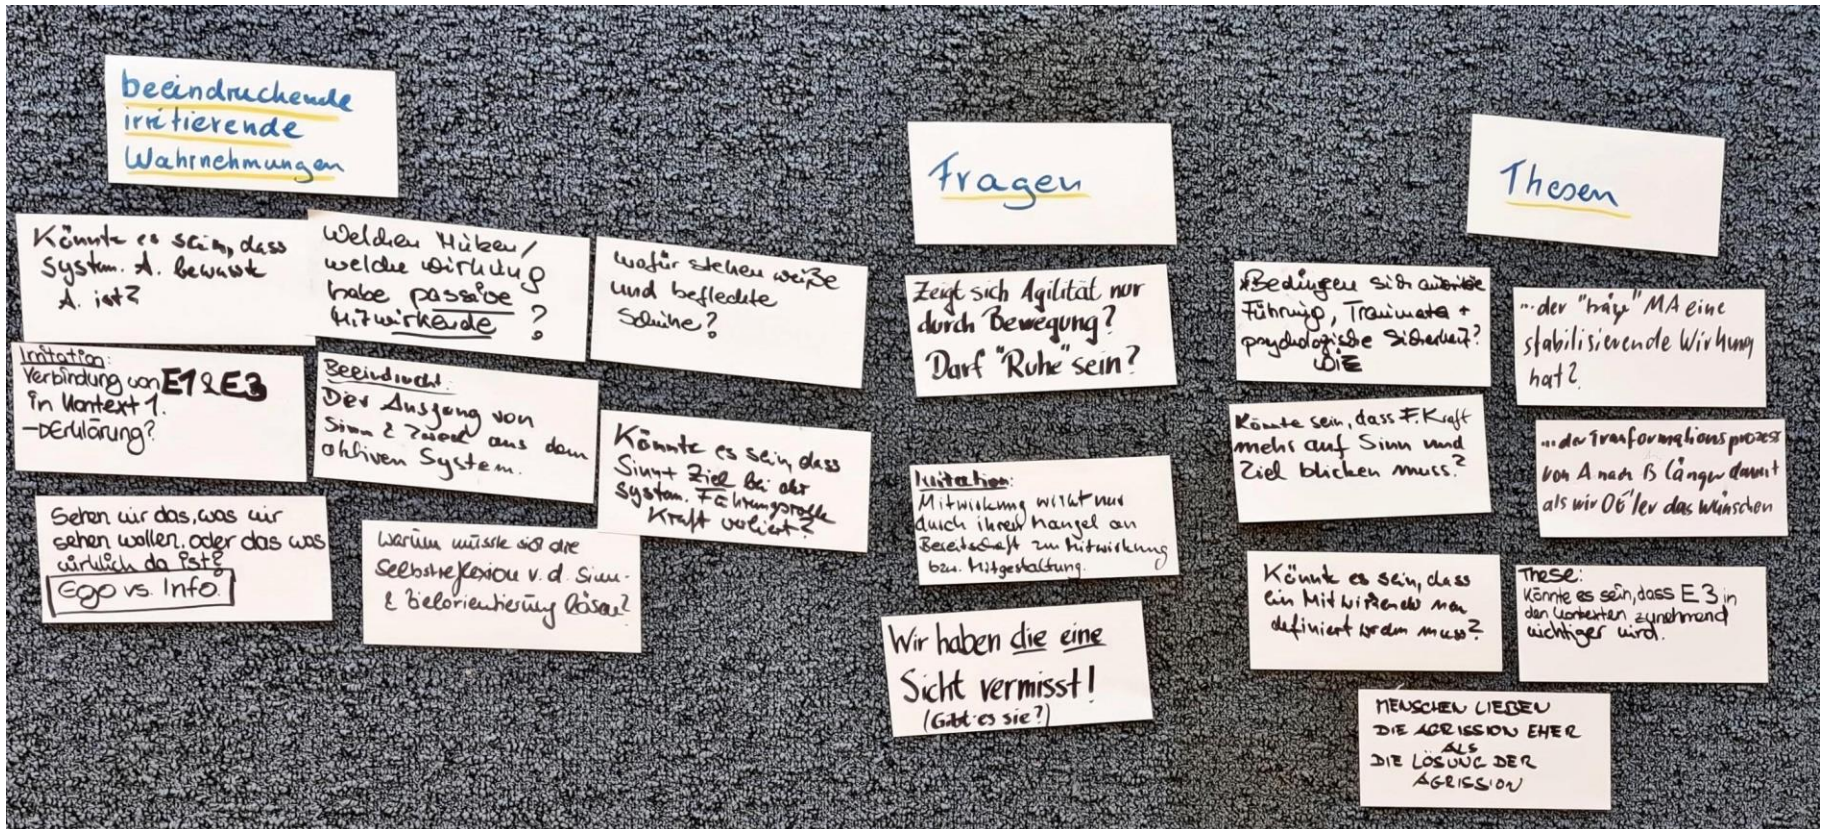 beeindruckende
irritierende
Wahrnehmungen
Könnte es sein, dass
System. A. bewusste
A. ist?
Welchen Nutzen/
welche Wirkung
habe passive
Mitwirkende ?
Wofür stehen weiße
und befleckte
Schuhe?
Irritation:
Verbindung von E1 & E3
in Kontext 1.
Beeindruckt:
Der Ausgang von
Sinn & Zweck aus dem
aktiven System.
Könnte es sein, dass
Sinn + Ziel bei der
System. Führungsrolle
Kraft verliert?
Sehen wir das, was wir
sehen wollen. oder das was
wirklich da ist?
Ego vs. Info.
Warum müsste sich die
Selbstreflexion v. d. Sinn-
& Zielorientierung lösen?
Fragen
Zeigt sich Agilität nur
durch Bewegung?
Darf "Ruhe" sein?
Irritation:
Mitwirkung wirkt nur
durch ihren Mangel an
Bereitschaft zur Mitwirkung
bzw. Mitgestaltung.
Wir haben die eine
Sicht vermisst!
(Gibt es sie?)
Thesen
Bedingen sich autoritäre
Führung, +
psychologische Sicherheit?
WIE
...der "träge" MA eine
stabilisierende Wirkung
hat?
Könnte sein, dass F. Kraft
mehr auf Sinn und
Ziel blicken muss?
...der Tranformationsprozess
von A nach B länger dauert
als wir OE'ler das wünschen
Könnte es sein, dass
ein Mitwirkende neu
definiert werden muss?
These:
Könnte es sein, dass E3 in
den Kontexten zunehmend
wichtiger wird.
MENSCHEN LIEBEN
DIE AGRISSION EHER
ALS
DIE LÖSUNG DER
AGRISSION